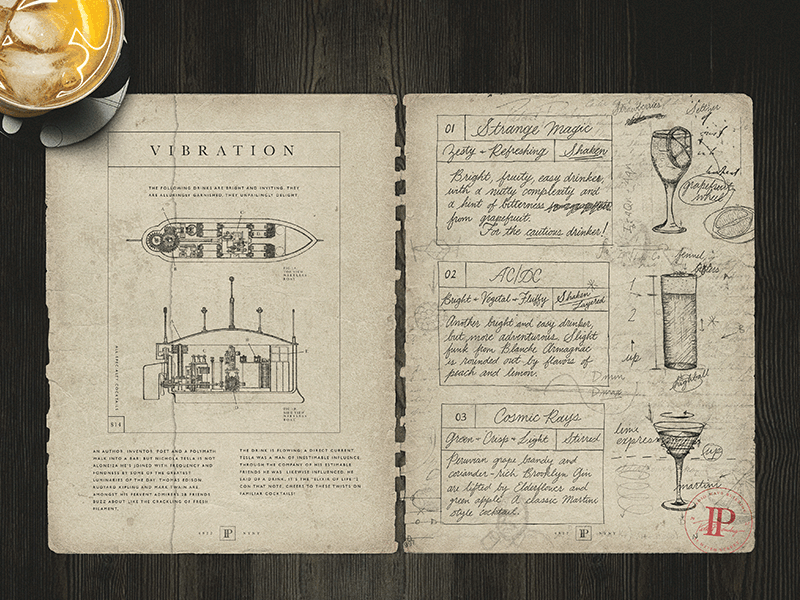 VIBRATION
THE FOLLOWING DRINKS ARE BRIGHT AND INVITING. THEY
ARE ALLURINGLY GARNISHED. THEY UNFAILINGLY DELIGHT.
$14
AN AUTHOR, INVENTOR, POET AND A POLYMATH
WALK INTO A BAR; BUT NICHOLA TESLA IS NOT
ALONE. HE'S JOINED WITH FREQUENCY AND
FONDNESS BY SOME OF THE GREATEST
LUMINARIES OF THE DAY. THOMAS EDISON
RUDYARD KIPLING AND MARK TWAIN ARE
AMONGST HIS FERVENT ADMIRERS & FRIENDS
BUZZ ABOUT LIKE THE CRACKLING OF FRESH
FILAMENT.
THE DRINK IS FLOWING: A DIRECT CURRENT.
TESLA WAS A MAN OF INESTIMABLE INFLUENCE.
THROUGH THE COMPANY OF HIS ESTIMABLE
FRIENDS HE WAS LIKEWISE INFLUENCED. HE
SAID OF A DRINK, IT'S THE "ELIXIR OF LIFE";
ON THAT NOTE, CHEERS TO THESE TWISTS ON
FAMILIAR COCKTAILS!
IP
01 Strange Magic
Zesty + Refreshing Shaken
Bright, fruity, easy drinker
with a nutty complexity and
a hint of bitterness
from grapefruit.
For the cautious drinker!
Strawberries
grapefruit
wheel
02 AC/DC
Bright + Vegetal + Fluffy Shaken
Layered
Another bright and easy drinker,
but more adventurous. Slight
funk from Blanche Armagnac
is rounded out by flavors of
peach and lemon.
fennel
1
2
up
highball
03 Cosmic Rays
Green + Crisp + Light Stirred
Peruvian grape brandy and
coriander-rich Brooklyn Gin
are lifted by Elderflower and
green apple. A classic Martini
style cocktail.
lime
express
up
martini
IP
IP